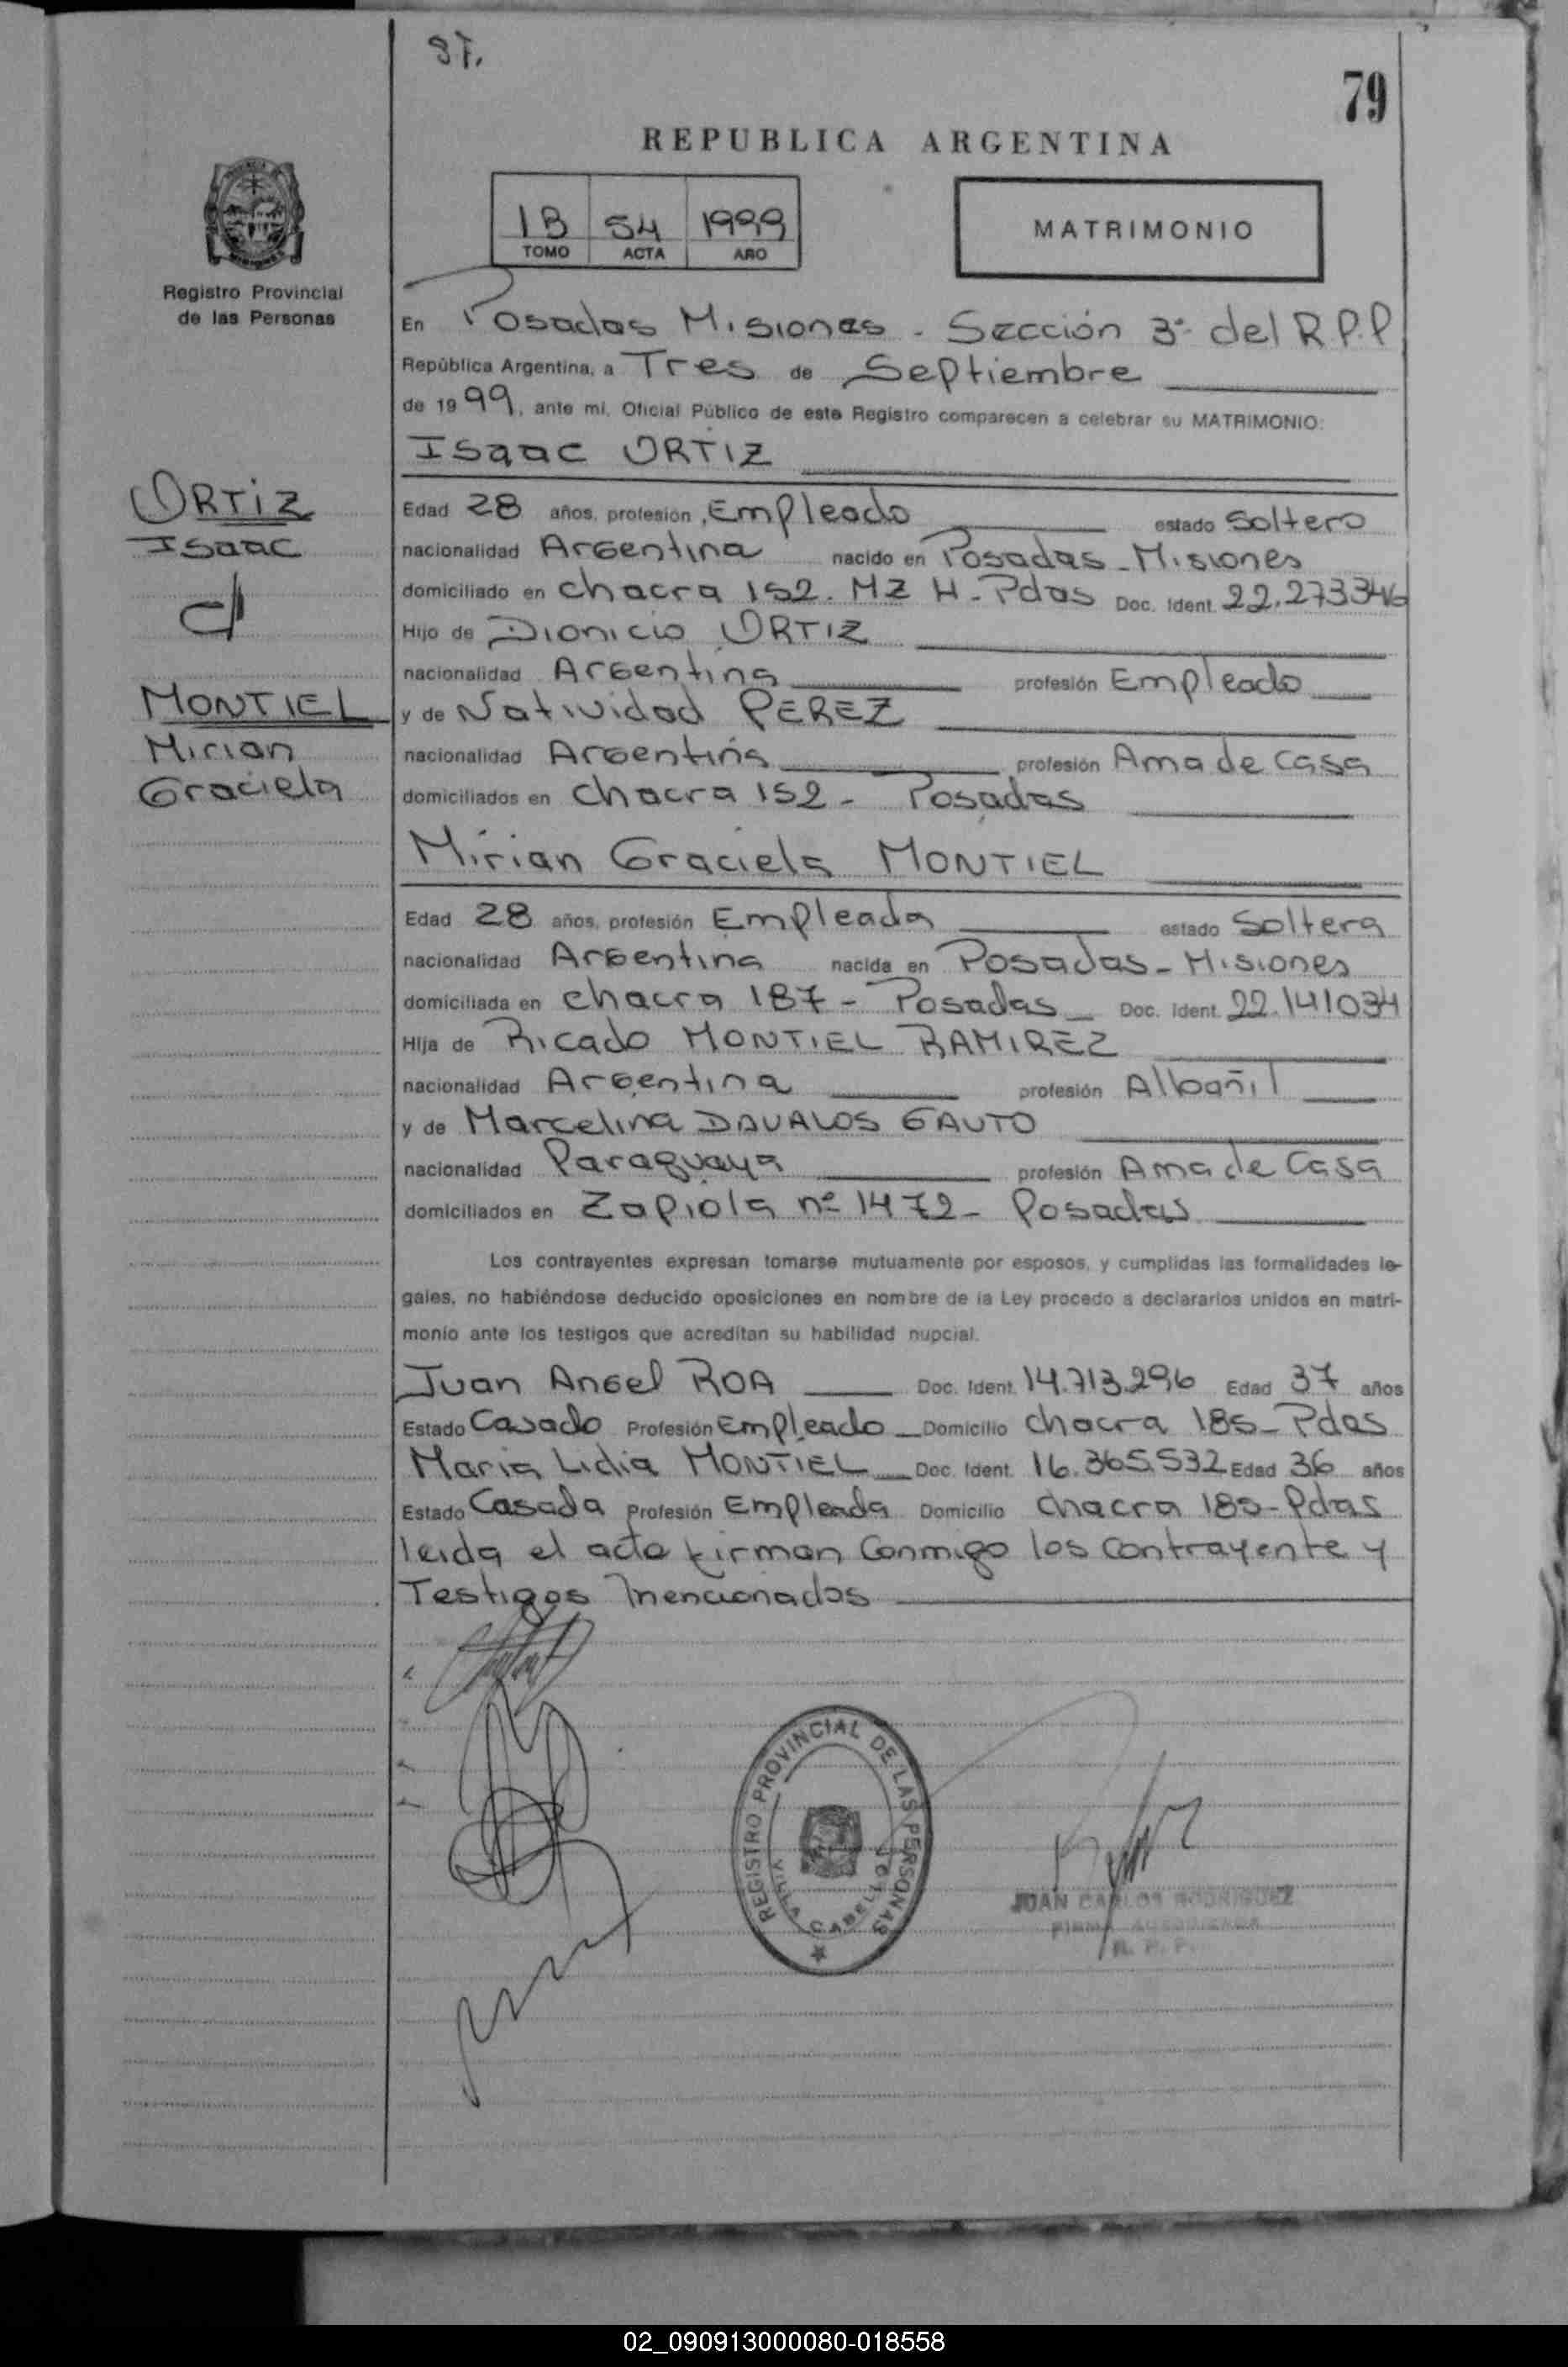 ST.
79
REPUBLICA ARGENTINA
1B 54 1999
TOMO ACTA AÑO
MATRIMONIO
Registro Provincial
de las Personas
En Posadas Misiones - Sección 3ª del R.P.P
República Argentina, a Tres de Septiembre
de 1999, ante mi, Oficial Público de este Registro comparecen a celebrar su MATRIMONIO:
Isaac ORTIZ
ORTIZ
Isaac
c/
MONTIEL
Mirian
Graciela
Edad 28 años, profesión Empleado estado Soltero
nacionalidad Argentina nacido en Posadas - Misiones
domiciliado en chacra 152. MZ H - Pdas Doc. Ident. 22.273346
Hijo de Dionicio ORTIZ
nacionalidad Argentina profesión Empleado
y de Natividad PEREZ
nacionalidad Argentina profesión Ama de casa
domiciliados en chacra 152 - Posadas
Mirian Graciela MONTIEL
Edad 28 años, profesión Empleada estado Soltera
nacionalidad Argentina nacida en Posadas - Misiones
domiciliada en chacra 187 - Posadas Doc. Ident. 22.141034
Hija de Ricado MONTIEL RAMIREZ
nacionalidad Argentina profesión Albañil
y de Marcelina DAVALOS GAUTO
nacionalidad Paraguaya profesión Ama de Casa
domiciliados en Zapiola nº 1472 - Posadas
Los contrayentes expresan tomarse mutuamente por esposos, y cumplidas las formalidades le-
gales, no habiéndose deducido oposiciones en nombre de la Ley procedo a declararlos unidos en matri-
monio ante los testigos que acreditan su habilidad nupcial.
Juan Angel ROA Doc. Ident. 14.713.296 Edad 37 años
Estado Casado Profesión Empleado Domicilio chacra 185 - Pdas
Maria Lidia MONTIEL Doc. Ident. 16.365.532 Edad 36 años
Estado Casada Profesión Empleada Domicilio chacra 185 - Pdas
leida el acta firman conmigo los contrayente y
Testigos mencionados
REGISTRO PROVINCIAL DE LAS PERSONAS
JUAN CARLOS RODRIGUEZ
FIRMA AUTORIZADA
R. P. P.
02_090913000080-018558